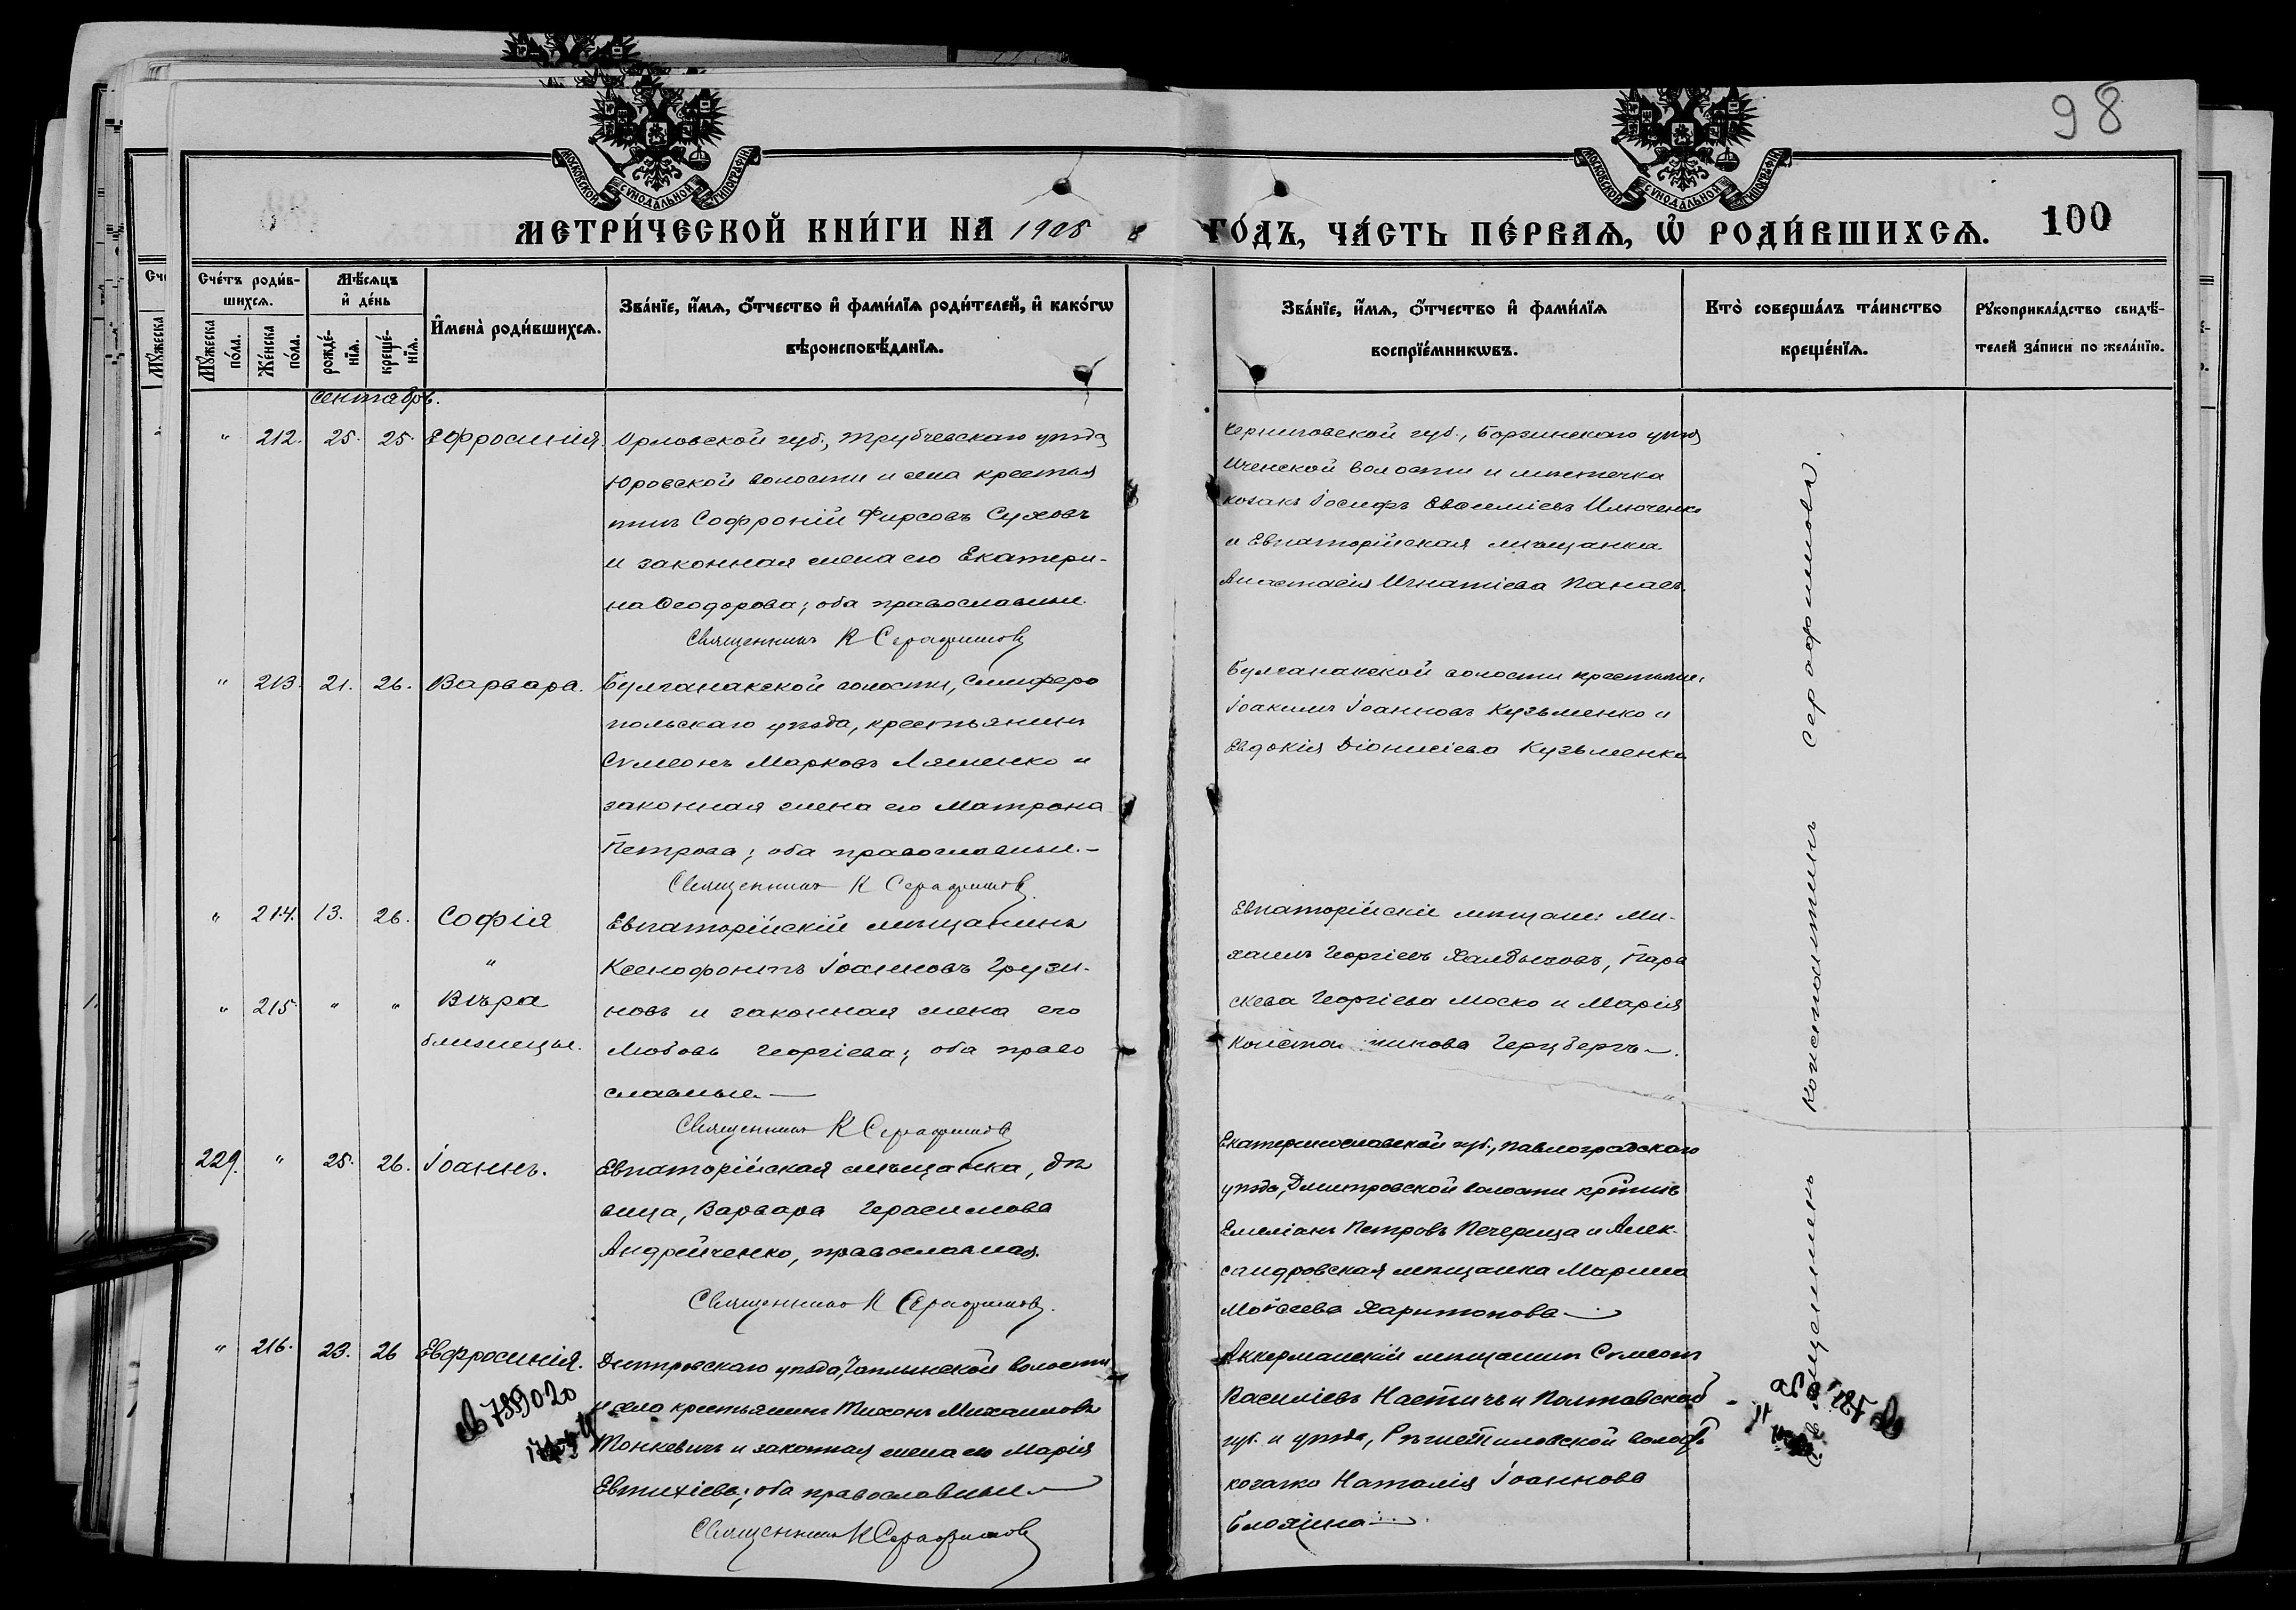 98
МОСКОВСКОЙ СѴНОДАЛЬНОЙ ТИПОГРАФІИ
МОСКОВСКОЙ СѴНОДАЛЬНОЙ ТИПОГРАФІИ
МЕТРИ́ЧЕСКОЙ КНИ́ГИ НА 1908
ГО́ДЪ, ЧА́СТЬ ПЕ́РВАѦ, Ѡ҆ РОДИ́ВШИХСѦ. 100
Сче́тъ роди́в-
шихсѧ.
Мꙋ́жеска по́ла.
Же́нска по́ла.
Мѣ́сѧцъ
и҆ де́нь
рожде́-
нїѧ.
креще́-
нїѧ.
И҆мена̀ роди́вшихсѧ.
Зва́нїе, и҆́мѧ, ѻ҆́тчество и҆ фами́лїѧ роди́телей, и҆ како́гѡ
вѣроисповѣ́данїѧ.
Зва́нїе, и҆́мѧ, ѻ҆́тчество и҆ фами́лїѧ
воспрїе́мникѡвъ.
Кто̀ соверша́лъ та́инство
креще́нїѧ.
Рꙋкоприкла́дство свидѣ́-
телей за́писи по жела́нїю.
Сентябрь.
" 212. 25. 25. Ефросинія.
Орловской губ., Трубчевскаго уѣзда
Юровской волости и села крестья
нинъ Софроній Фирсовъ Суховъ
и законная жена его Екатери-
на Ѳеодорова; оба православные.
Священникъ К Серафимовъ
Черниговской губ., Борзинскаго уѣзда
Иченской волости и мѣстечка
козакъ Іосифъ Евѳиміевъ Илюченко
и Евпаторійская мѣщанка
Анастасія Игнатіева Панаев.
" 213. 21. 26. Варвара.
Булганакской волости, Симферо
польскаго уѣзда, крестьянинъ
Сѵмеонъ Марковъ Ляшенко и
законная жена его Матрона
Петрова; оба православные.-
Священникъ К Серафимовъ
Булганакской волости крестьяне:
Іоакимъ Іоанновъ Кузьменко и
Евдокія Діонисіева Кузьменко
" 214. 13. 26. Софія
"
" 215. " " Вѣра
близнецы.
Евпаторійскій мѣщанинъ
Ксенофонтъ Іоанновъ Грузи-
новъ и законная жена его
Любовь Георгіева; оба право
славные. —
Священникъ К Серафимовъ
Евпаторійскіе мѣщане: Ми-
хаилъ Георгіевъ Халдыховъ, Пара
скева Георгіева Моско и Марія
Константинова Герцбергъ —.
229. " 25. 26. Іоаннъ.
Евпаторійская мѣщанка, дѣ
вица, Варвара Герасимова
Андрейченко, православная.
Священникъ К Серафимовъ.
Екатеринославской губ., Павлоградскаго
уѣзда, Дмитровской волости кр-тинъ
Емеліанъ Петровъ Печерица и Алек-
сандровская мѣщанка Марина
Моѵсеева Харитонова —
" 216. 23. 26 Евфросинія.
Днѣпровскаго уѣзда, Чаплинской волости
и села крестьянинъ Тихонъ Михаиловъ
Тонкевичъ и законная жена его Марія
Евтихіева; оба православные —
Священникъ К Серафимовъ
Аккерманскій мѣщанинъ Сѵмеонъ
Василіевъ Настичъ и Полтавской
губ. и уѣзда, волости
козачка Наталія Іоаннова
Блохина —
Священникъ Константинъ Серафимовъ.